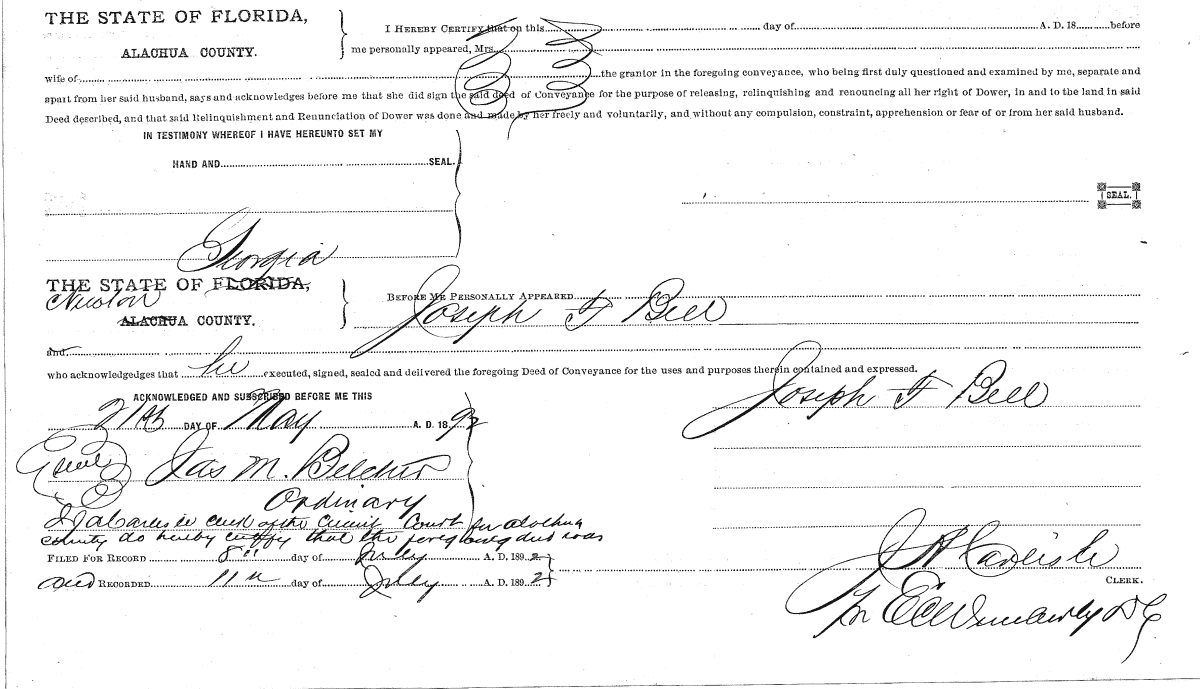 THE STATE OF FLORIDA,
ALACHUA COUNTY.
I HEREBY CERTIFY that on this day of A. D. 18 before
me personally appeared, Mrs.
wife of the grantor in the foregoing conveyance, who being first duly questioned and examined by me, separate and
apart from her said husband, says and acknowledges before me that she did sign the said deed of Conveyance for the purpose of releasing, relinquishing and renouncing all her right of Dower, in and to the land in said
Deed described, and that said Relinquishment and Renunciation of Dower was done and made by her freely and voluntarily, and without any compulsion, constraint, apprehension or fear of or from her said husband.
IN TESTIMONY WHEREOF I HAVE HEREUNTO SET MY
HAND AND SEAL.
SEAL.
Georgia
THE STATE OF FLORIDA,
Newton
ALACHUA COUNTY.
BEFORE ME PERSONALLY APPEARED
Joseph F Bell
and
who acknowledgedges that he executed, signed, sealed and delivered the foregoing Deed of Conveyance for the uses and purposes therein contained and expressed.
Joseph F Bell
ACKNOWLEDGED AND SUBSCRIBED BEFORE ME THIS
21st DAY OF May A. D. 1892
Seal Jas M. Belcher
Ordinary
I J A Carlisle clerk of the Circuit Court for Alachua
county do hereby certify that the foregoing deed was
FILED FOR RECORD 8" day of July A. D. 1892
and RECORDED 11th day of July A. D. 1892
J A Carlisle
CLERK.
Wimberly D C